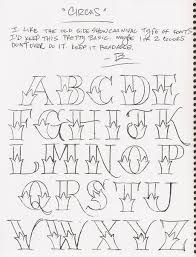 "CIRCUS"
I LIKE THE OLD SIDE SHOW/CARNIVAL TYPE OF FONTS
I'D KEEP THIS PRETTY BASIC. MAYBE 1 OR 2 COLORS
DON'T OVER DO IT. KEEP IT READABLE.
ABCDE
FGHIJK
LMNOP
QRSTU
VWXYZ